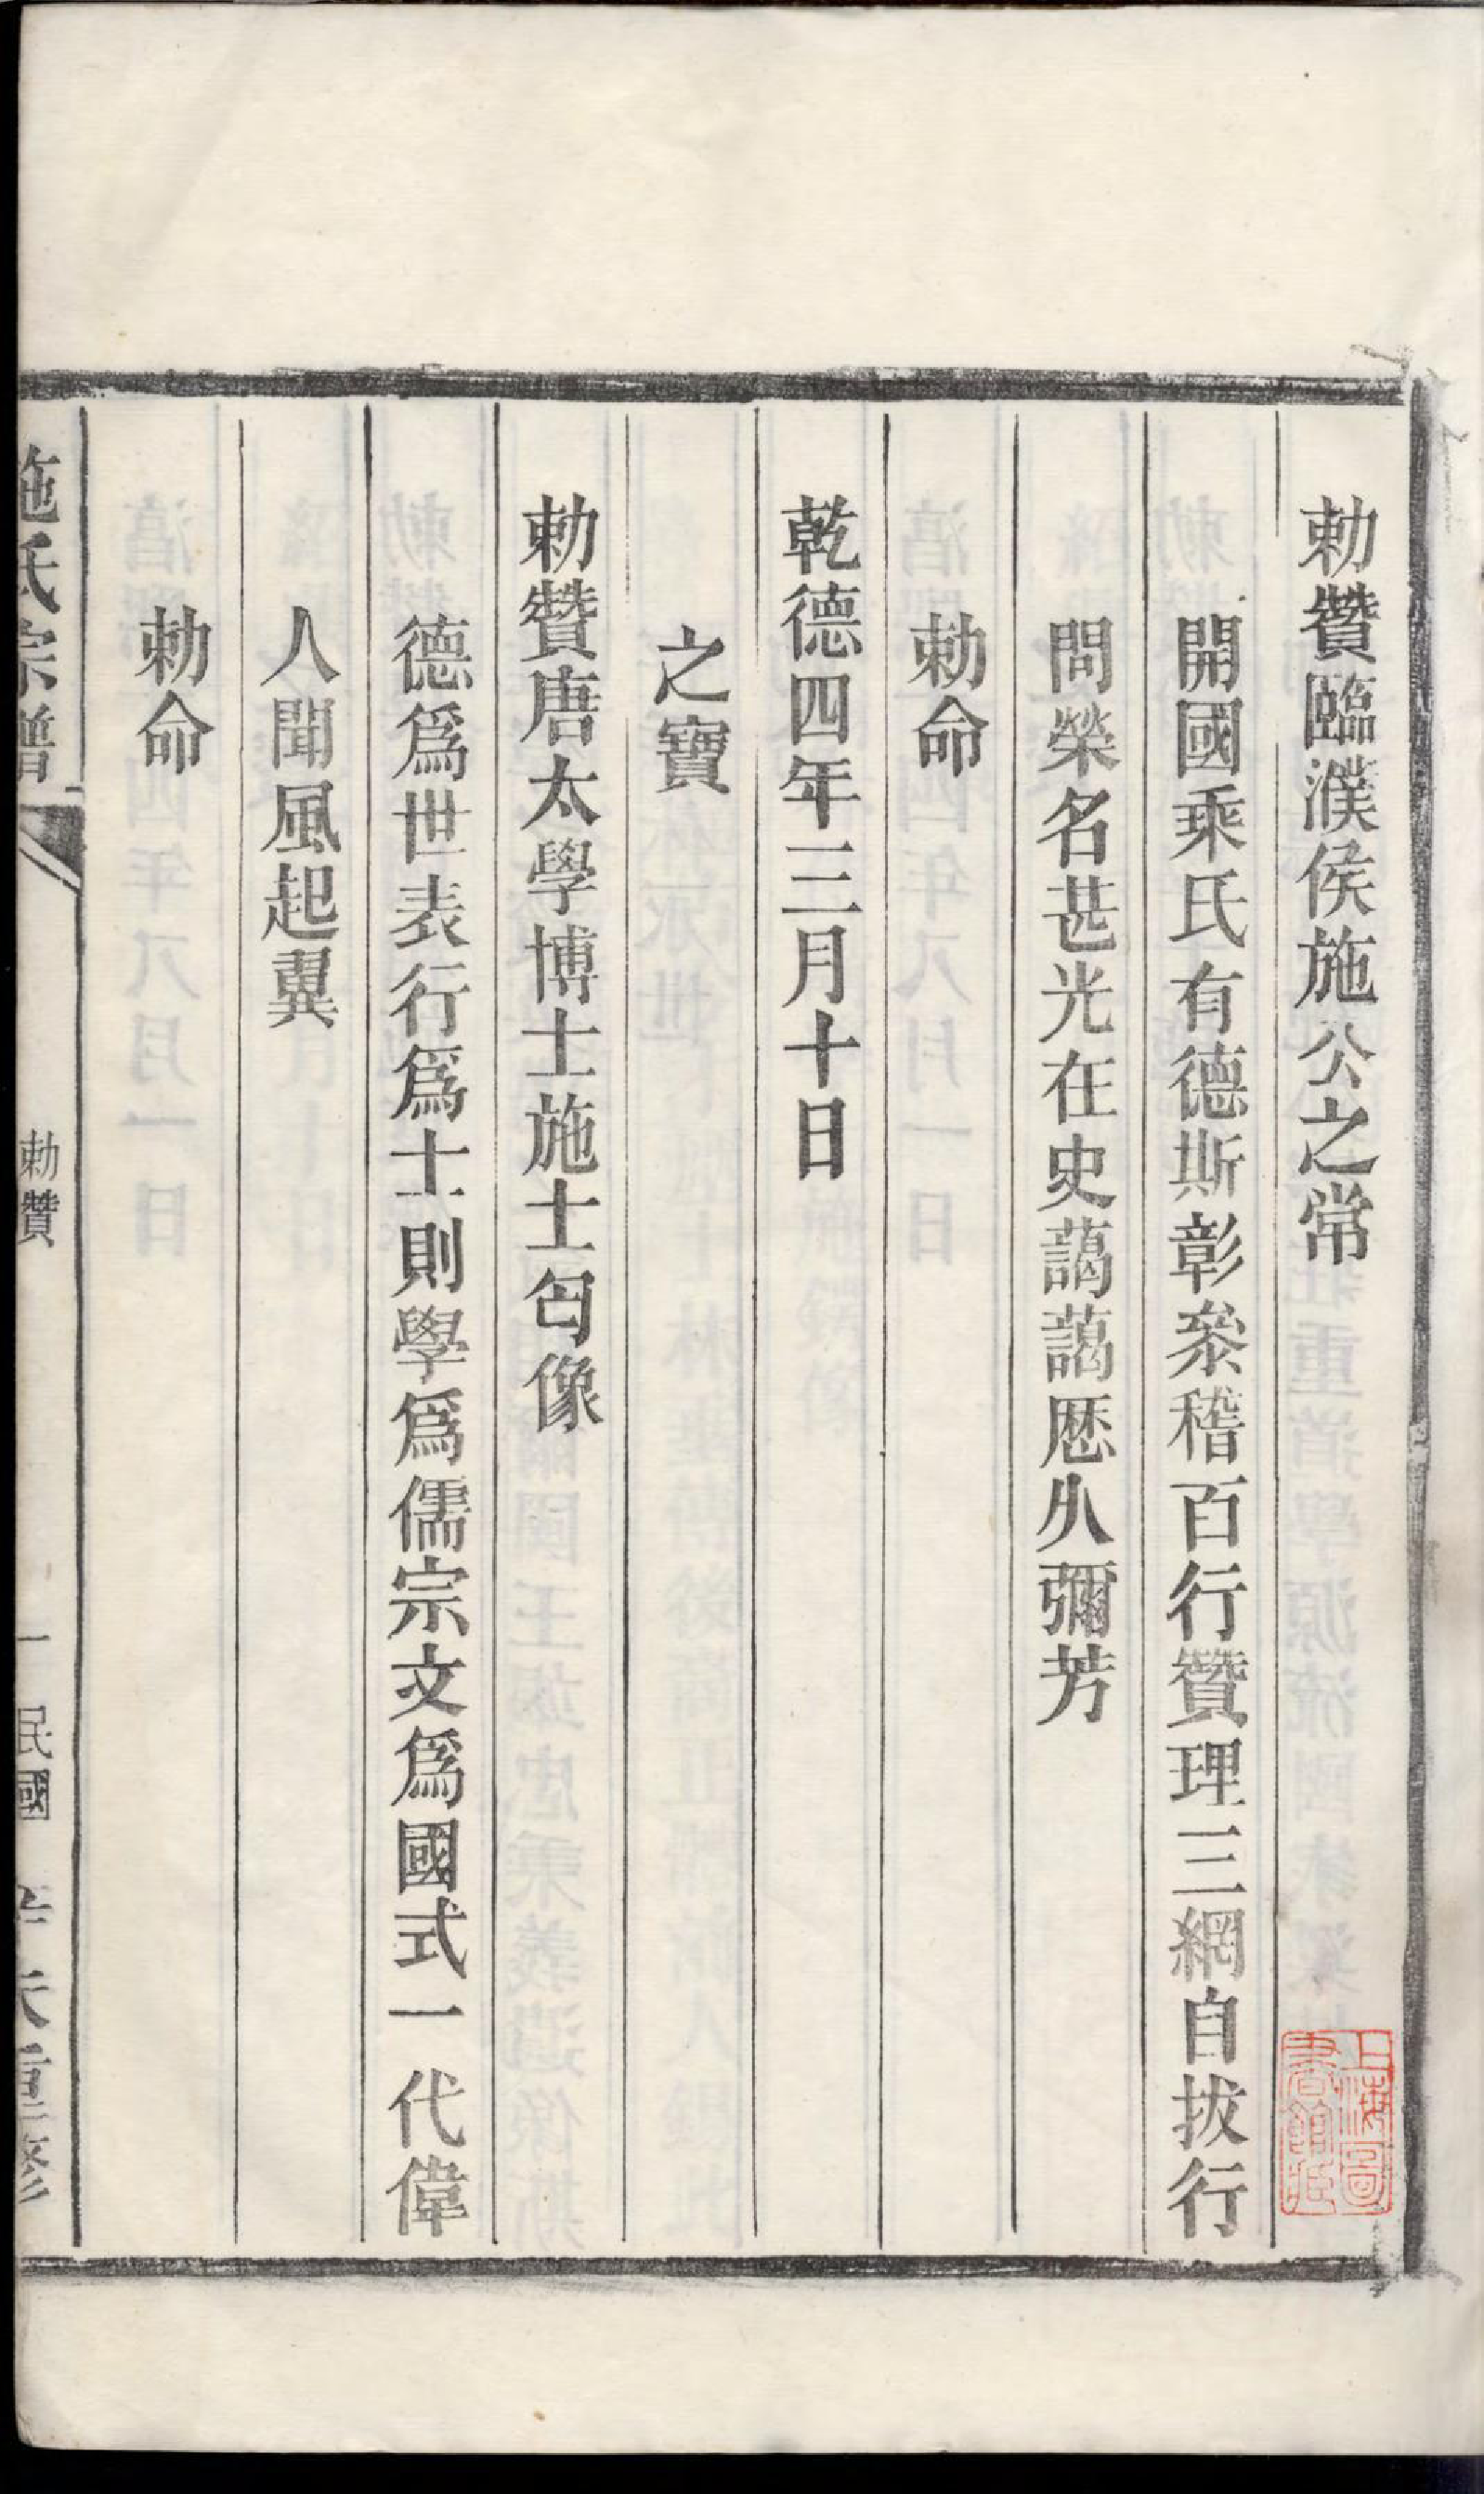 勅贊臨濮侯施公之常
開國乘氏有德斯彰叅稽百行贊理三綱自拔行
問榮名甚光在史藹藹厯久彌芳
勅命
乾德四年三月十日
之寶
勅贊唐太學博士施士匄像
德爲世表行爲士則學爲儒宗文爲國式一代偉
人聞風起翼
勅命
施氏宗譜
勅贊
一
民國
重修
上海圖
書館藏